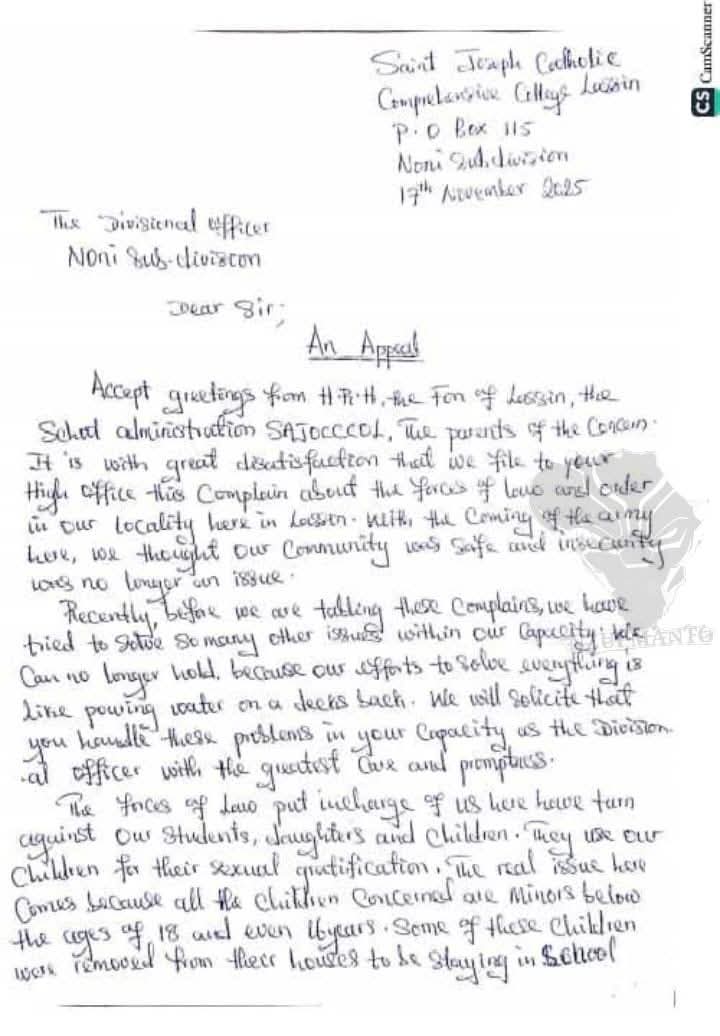 CS CamScanner
Saint Joseph Catholic
Comprehensive College Lassin
P.O Box 115
Noni Subdivision
17th November 2025
The Divisional Officer
Noni Sub-division
Dear Sir;
An Appeal
Accept greetings from H.R.H, the Fon of Lassin, the
School administration SAJOCCCOL, The parents of the Concern.
It is with great disatisfaction that we file to your
High Office this Complain about the forces of law and order
in our locality here in Lassin. With the Coming of the army
here, we thought our Community was safe and insecurity
was no longer an issue.
Recently, before we are tabling these Complains, we have
tried to solve so many other issues within our Capacity; We
Can no longer hold, because our efforts to solve everything is
like pouring water on a decks back. We will solicite that
you handle these problems in your Capacity as the Division
-al officer with the greatest Care and promptness.
The forces of Law put incharge of us here have turn
against Our Students, daughters and Children. They use our
Children for their sexual gratification. The real issue here
Comes because all the Children Concerned are Minors below
the ages of 18 and even 16years. Some of these Children
were removed from their houses to be staying in School